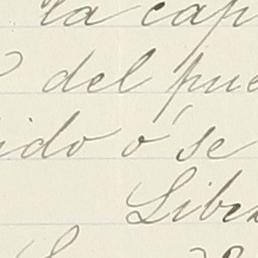 la cap
del pue
ido ó se
Libe